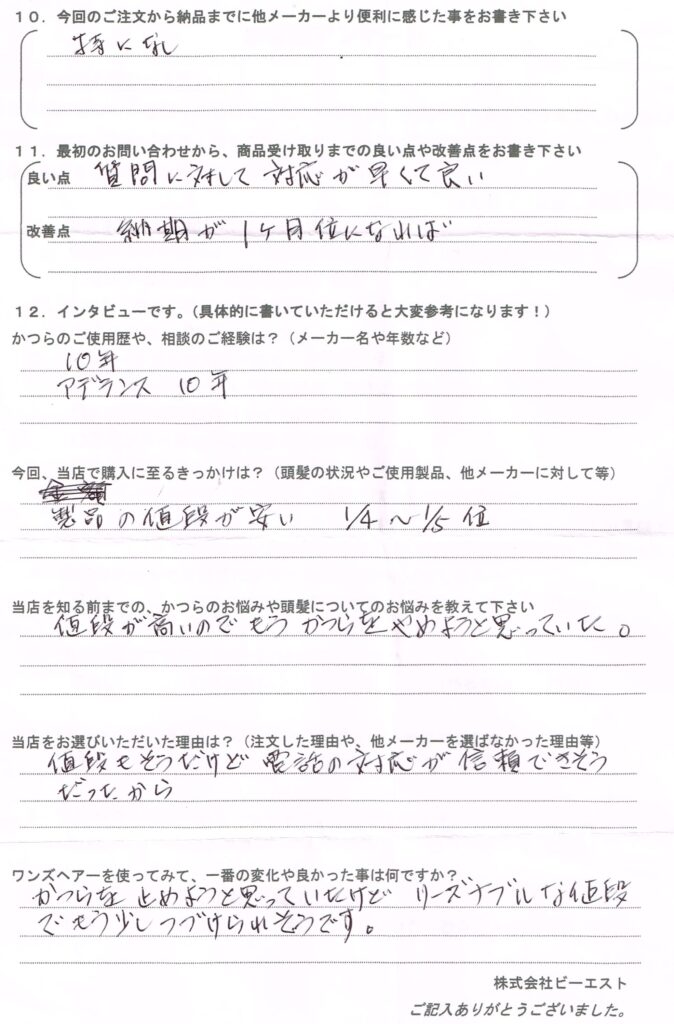 １０．今回のご注文から納品までに他メーカーより便利に感じた事をお書き下さい
特になし
１１．最初のお問い合わせから、商品受け取りまでの良い点や改善点をお書き下さい
良い点 質問に対して対応が早くて良い
改善点 納期が1ヶ月位になれば
１２．インタビューです。（具体的に書いていただけると大変参考になります！）
かつらのご使用歴や、相談のご経験は？（メーカー名や年数など）
10年
アデランス 10年
今回、当店で購入に至るきっかけは？（頭髪の状況やご使用製品、他メーカーに対して等）
製品の値段が安い 1/4～1/5位
当店を知る前までの、かつらのお悩みや頭髪についてのお悩みを教えて下さい
値段が高いのでもうかつらをやめようと思っていた。
当店をお選びいただいた理由は？（注文した理由や、他メーカーを選ばなかった理由等）
値段もそうだけど電話の対応が信頼できそう
だったから
ワンズヘアーを使ってみて、一番の変化や良かった事は何ですか？
かつらを止めようと思っていたけどリーズナブルな値段
でもう少しつづけられそうです。
株式会社ビーエスト
ご記入ありがとうございました。